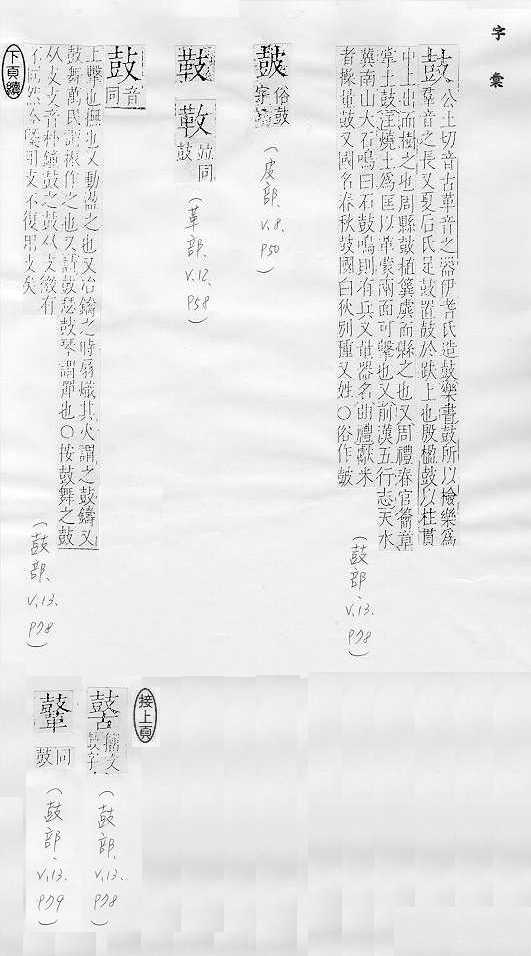 字彙
鼓 公土切音古革音之器伊耆氏造鼓樂書鼓所以檢樂為
羣音之長又夏后氏足鼓置鼓於趺上也殷楹鼓以柱貫
中上出而樹之也周縣鼓植簨虡而縣之也又周禮春官籥章
掌土鼓注燒土為匡以革蒙兩面可擊也又前漢五行志天水
冀南山大石鳴曰石鼓鳴則有兵又量器名曲禮獻米
者操量鼓又國名春秋鼓國白狄別種又姓○俗作皷
(鼓部、V.13、P78)
皷 俗鼓字
(皮部、V.8、P50)
鼓 並同
(革部、V.12、P58)
鼔 音同
上擊也撫也又動盪之也又冶鑄之時扇熾其火謂之鼓鑄又
鼓舞萬民謂振作之也又謂鼓瑟鼓琴謂彈也○按鼓舞之鼓
从攴攴音朴鐘鼓之鼓从支微有
不同然今隸同支不復用攴矣
(鼓部、V.13、P78)
下頁續
接上頁
籀文鼓字
(鼓部、V.13、P78)
同鼓
(鼓部、V.13、P79)